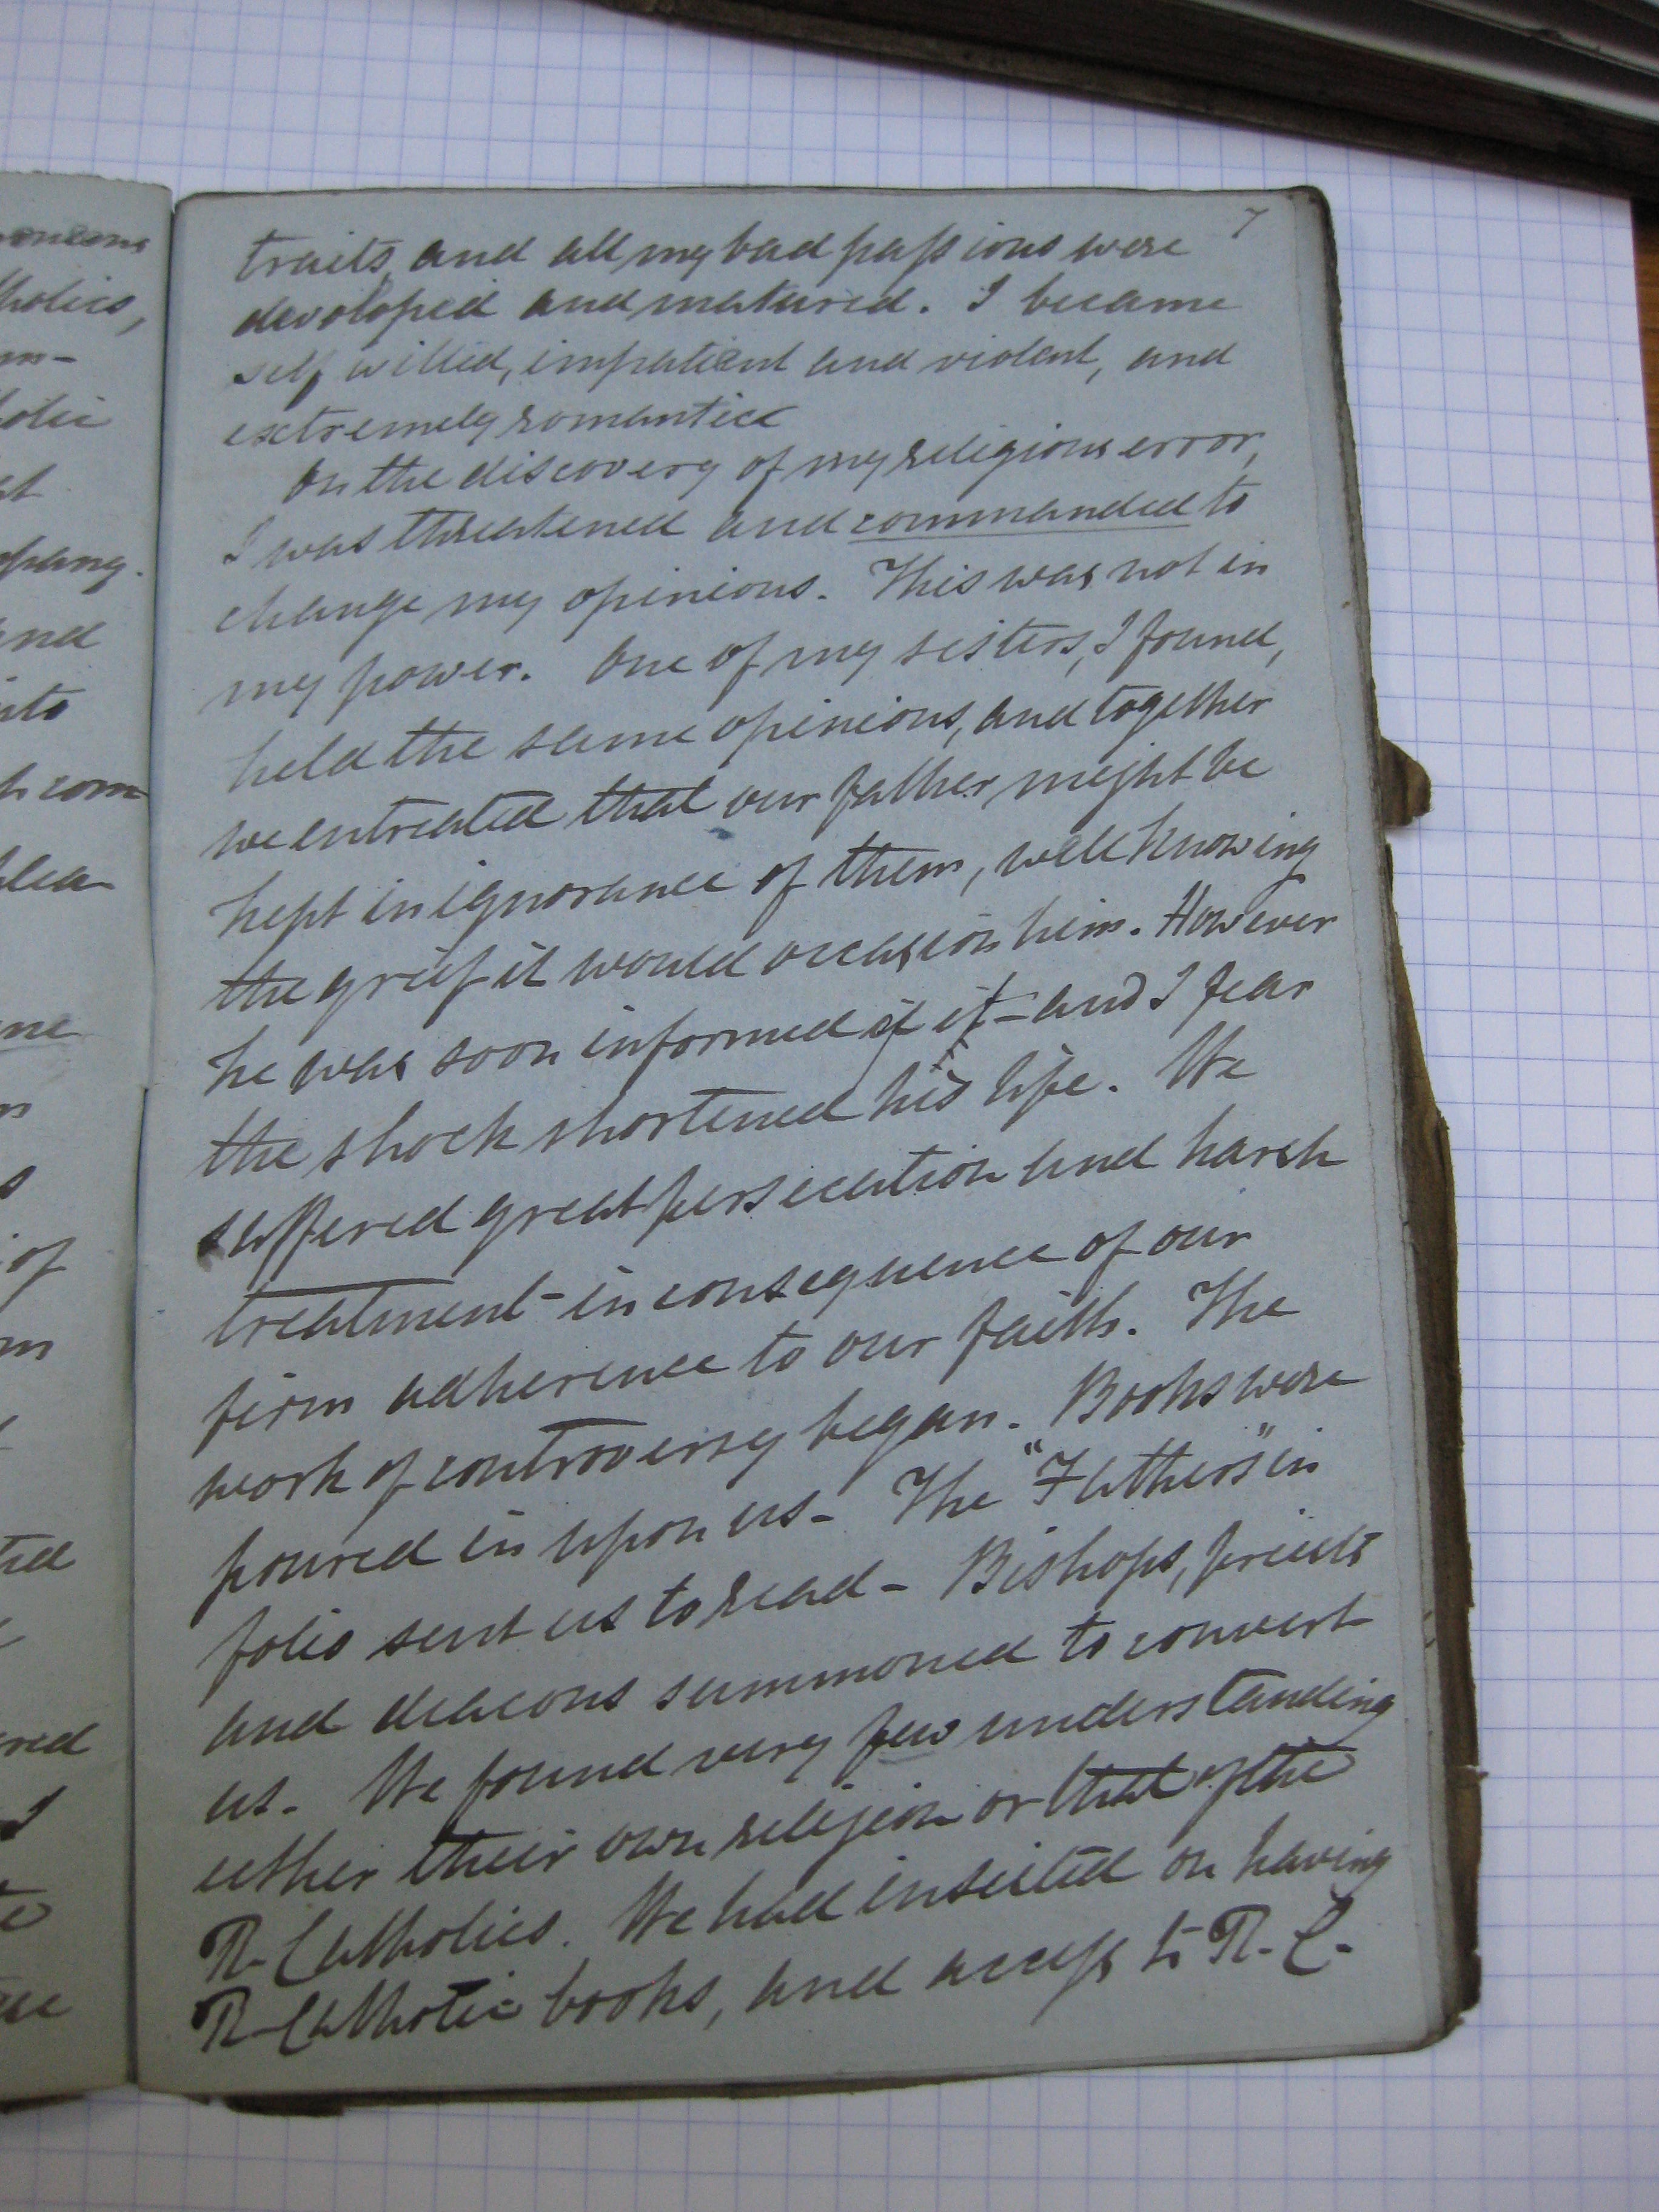 7
traits, and all my bad passions were
developed and matured. I became
self willed, impatient and violent, and
extremely romantick
On the discovery of my religious error,
I was threatened and commanded to
change my opinions. This was not in
my power. One of my sisters, I found,
held the same opinions, and together
we entreated that our father might be
kept in ignorance of them, well knowing
the grief it would occasion him. However
he was soon informed of it – and I fear
the shock shortened his life. We
suffered great persecution and harsh
treatment – in consequence of our
firm adherence to our faith. The
work of controversy began. Books were
poured in upon us – The "Fathers" in
folio sent us to read – Bishops, priests
and deacons summoned to convert
us. We found very few understanding
either their own religion or that of the
R. Catholics. We had insisted on having
R-Catholic books, and access to R. C.
holics,
olic
pang.
and
into
com-
me
of
red